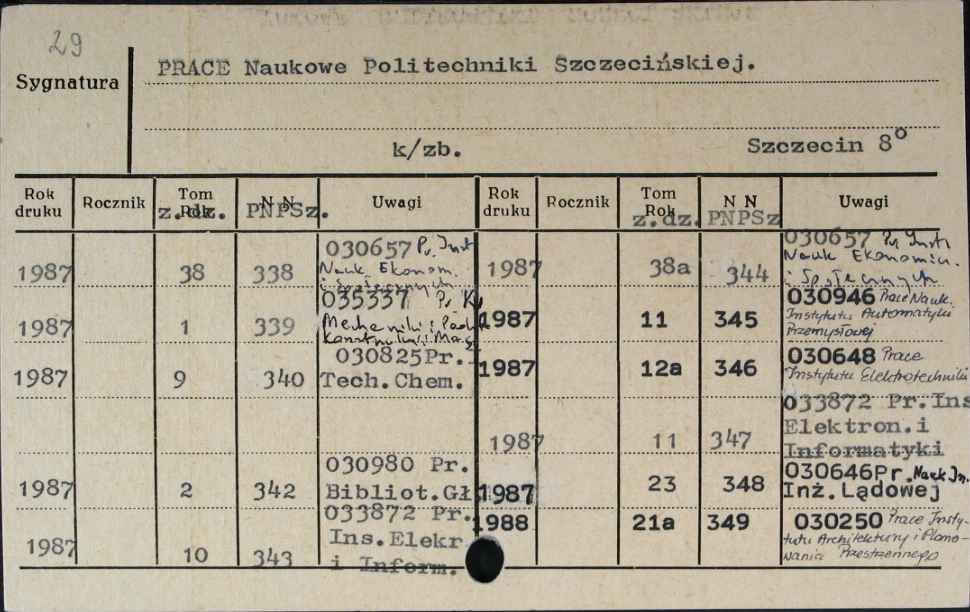 29
Sygnatura
PRACE Naukowe Politechniki Szczecińskiej.
k/zb.
Szczecin 8°
Rok druku
Rocznik
Tom Rok
z.dz.
N N
PNPSz.
Uwagi
Rok druku
Rocznik
Tom Rok
z.dz.
N N
PNPSz
Uwagi
1987 38 338 030657 Pr. Inst
Nauk Ekonom.
i Społecznych
1987 1 339 035337 Pr K
Mechaniki i Podst
Konstrukcji Masz
1987 9 340 030825Pr.
Tech.Chem.
1987 2 342 030980 Pr.
Bibliot.Gł
1987 10 343 033872 Pr.
Ins.Elekr
i Inform.
1987 38a 344 030657 Pr Inst
Nauk Ekonomicz.
i Społecznych
1987 11 345 030946 Prace Nauk.
Instytutu Automatyki
Przemysłowej
1987 12a 346 030648 Prace
Instytutu Elektrotechniki
1987 11 347 033872 Pr.Ins
Elektron.i
Informatyki
1987 23 348 030646Pr. Nauk In.
Inż.Lądowej
1988 21a 349 030250 Prace Insty-
tutu Architektury i Plano-
wania Przestrzennego